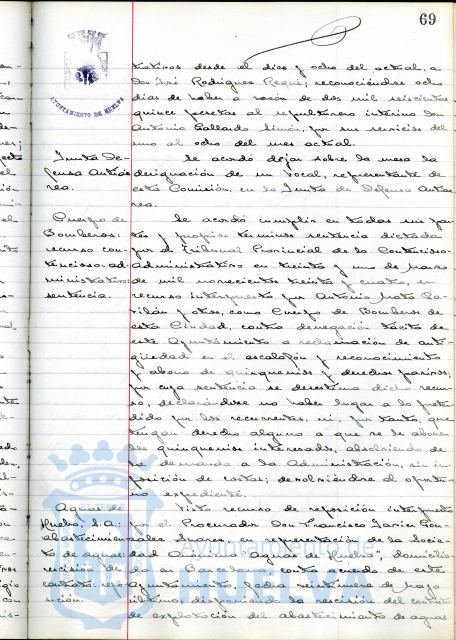 69
AYUNTAMIENTO DE HUELVA
desde el diez y ocho del actual, a
Don José Rodriguez Requi; reconociéndose ocho
dias de haber a razón de dos mil seiscientas
quince pesetas al sepulturero interino Don
Antonio Gallardo Limón, por sus servicios del
uno al ocho del mes actual.
Junta De-
fensa Antiaé-
rea.
Se acordó dejar sobre la mesa la
designación de un vocal, representante de
esta Comisión, en la Junta de Defensa Antiaé-
rea.
Cuerpo de
Bomberos:
recurso con-
tencioso-ad-
ministrativo:
sentencia.
Se acordó cumplir en todas sus par-
tes y propios términos sentencia dictada
por el Tribunal Provincial de lo Contencioso-
Administrativo en treinta y uno de Marzo
de mil novecientos treinta y cuatro, en
recurso interpuesto por Antonio
y otros, como Cuerpo de Bomberos de
esta Ciudad, contra denegación tácita de
este Ayuntamiento a reclamación de anti-
güedad en el escalafón y reconocimiento
y abono de quinquenios y derechos pasivos;
por cuya sentencia se desestima dicho recur-
so, declarándose no haber lugar a lo preten-
dido por los recurrentes, ni, por tanto, que
tengan derecho alguno a que se les abonen
los quinquenios interesados, absolviendo de
la demanda a la Administración, sin im-
posición de costas; devolviéndose el oportu-
no expediente.
Aguas de
Huelva, S.A.:
abastecimiento
de aguas:
rescisión de
contrato: repo-
sición.
Visto recurso de reposición interpuesto
por el Procurador Don Francisco Javier Gon-
zález Suarez, en representación de la Socie-
dad Anónima "Aguas de Huelva", domicilia-
da en Barcelona, contra acuerdo de este
Ayuntamiento, fecha veintinueve de Mayo
último, disponiendo la rescisión del contrato
de explotación del abastecimiento de aguas
Ayuntamiento de
HUELVA